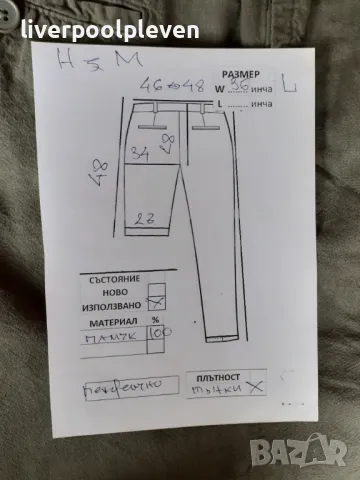 liverpoolpleven
H & M
РАЗМЕР
46 ⇔ 48
W 36 инча
L
L ........ инча
48
34
48
23
СЪСТОЯНИЕ
НОВО
ИЗПОЛЗВАНО X
МАТЕРИАЛ %
ПАМУК 100
перфектно
ПЛЪТНОСТ
тънки X
BAZAR